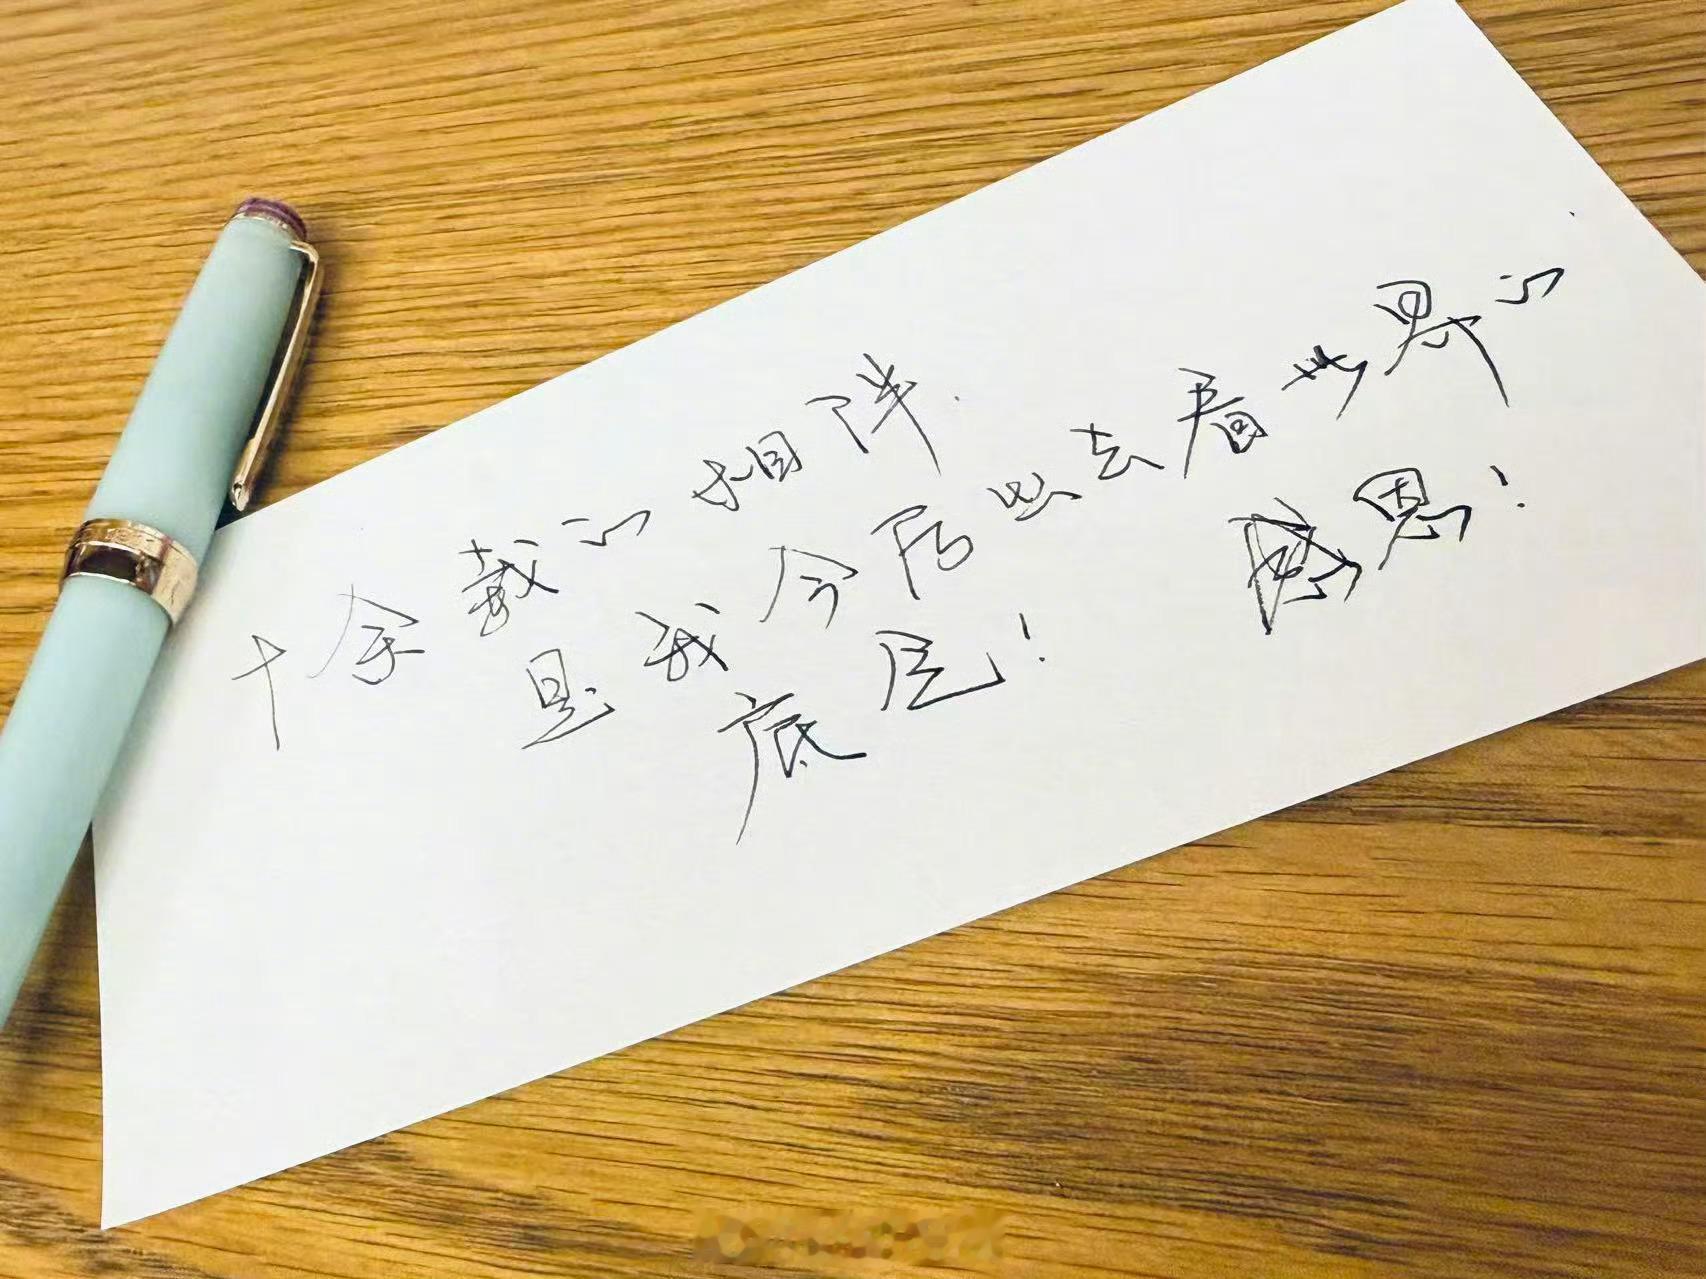 十余载的相伴.
是我今后出去看世界的
底气!
感恩!